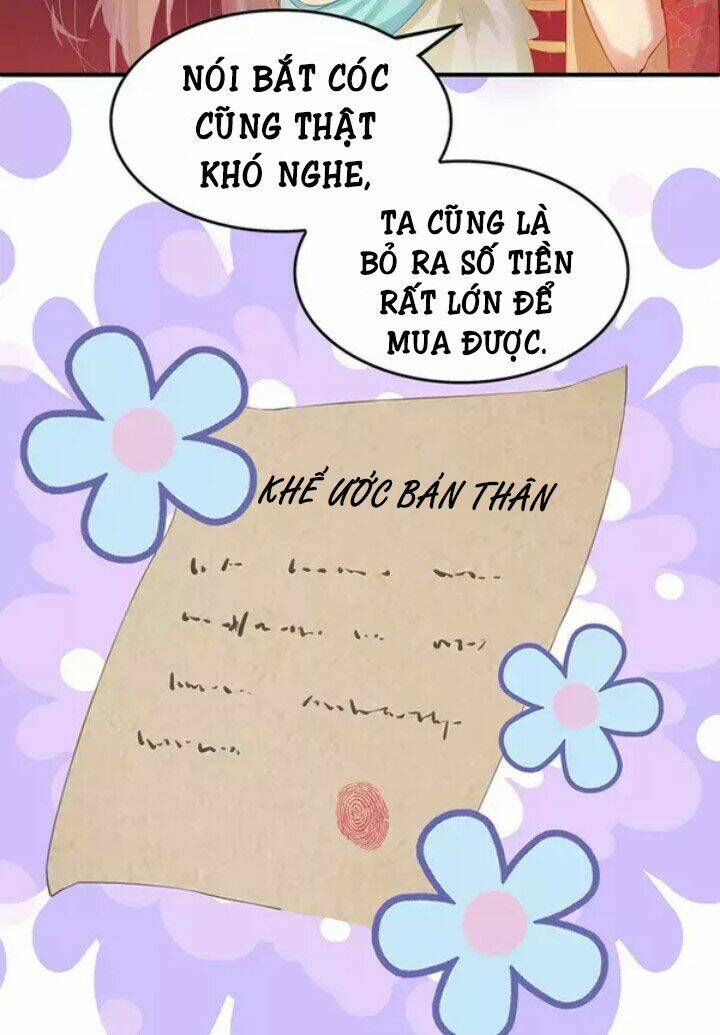 NÓI BẮT CÓC
CŨNG THẬT
KHÓ NGHE,
TA CŨNG LÀ
BỎ RA SỐ TIỀN
RẤT LỚN ĐỂ
MUA ĐƯỢC.
KHẾ ƯỚC BÁN THÂN